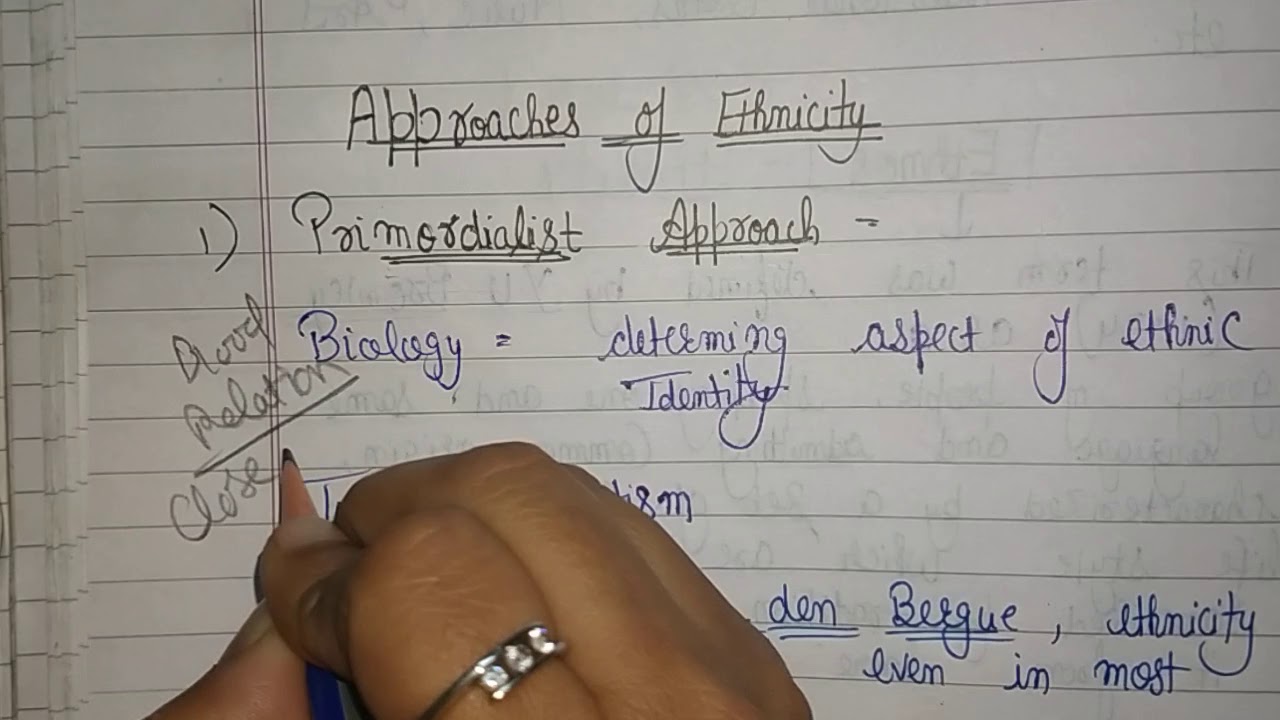 Approaches of Ethnicity
1) Primordialist Approach =
Blood
Relation
Biology = determing aspect of ethnic
Identity
Close
den Bergue, ethnicity
even in most